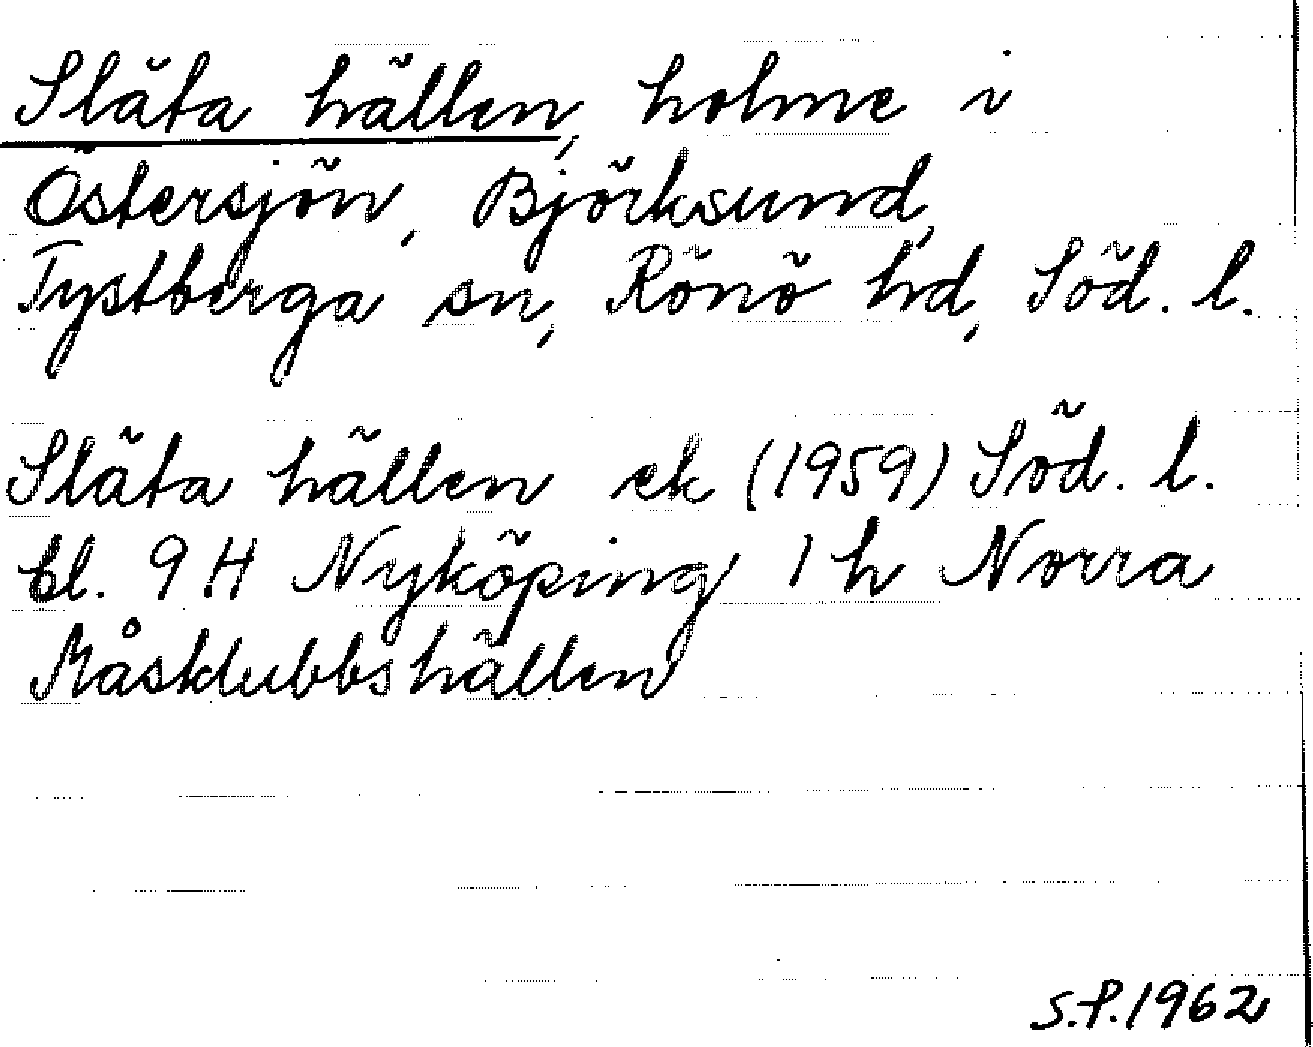 Släta hällen, holme i
Östersjön, Björksund,
Tystberga sn, Rönö hd, Söd. l.
Släta hällen ek (1959) Söd. l.
bl. 9 H Nyköping 1 h Norra
Måsklubbshällen
S.P. 1962